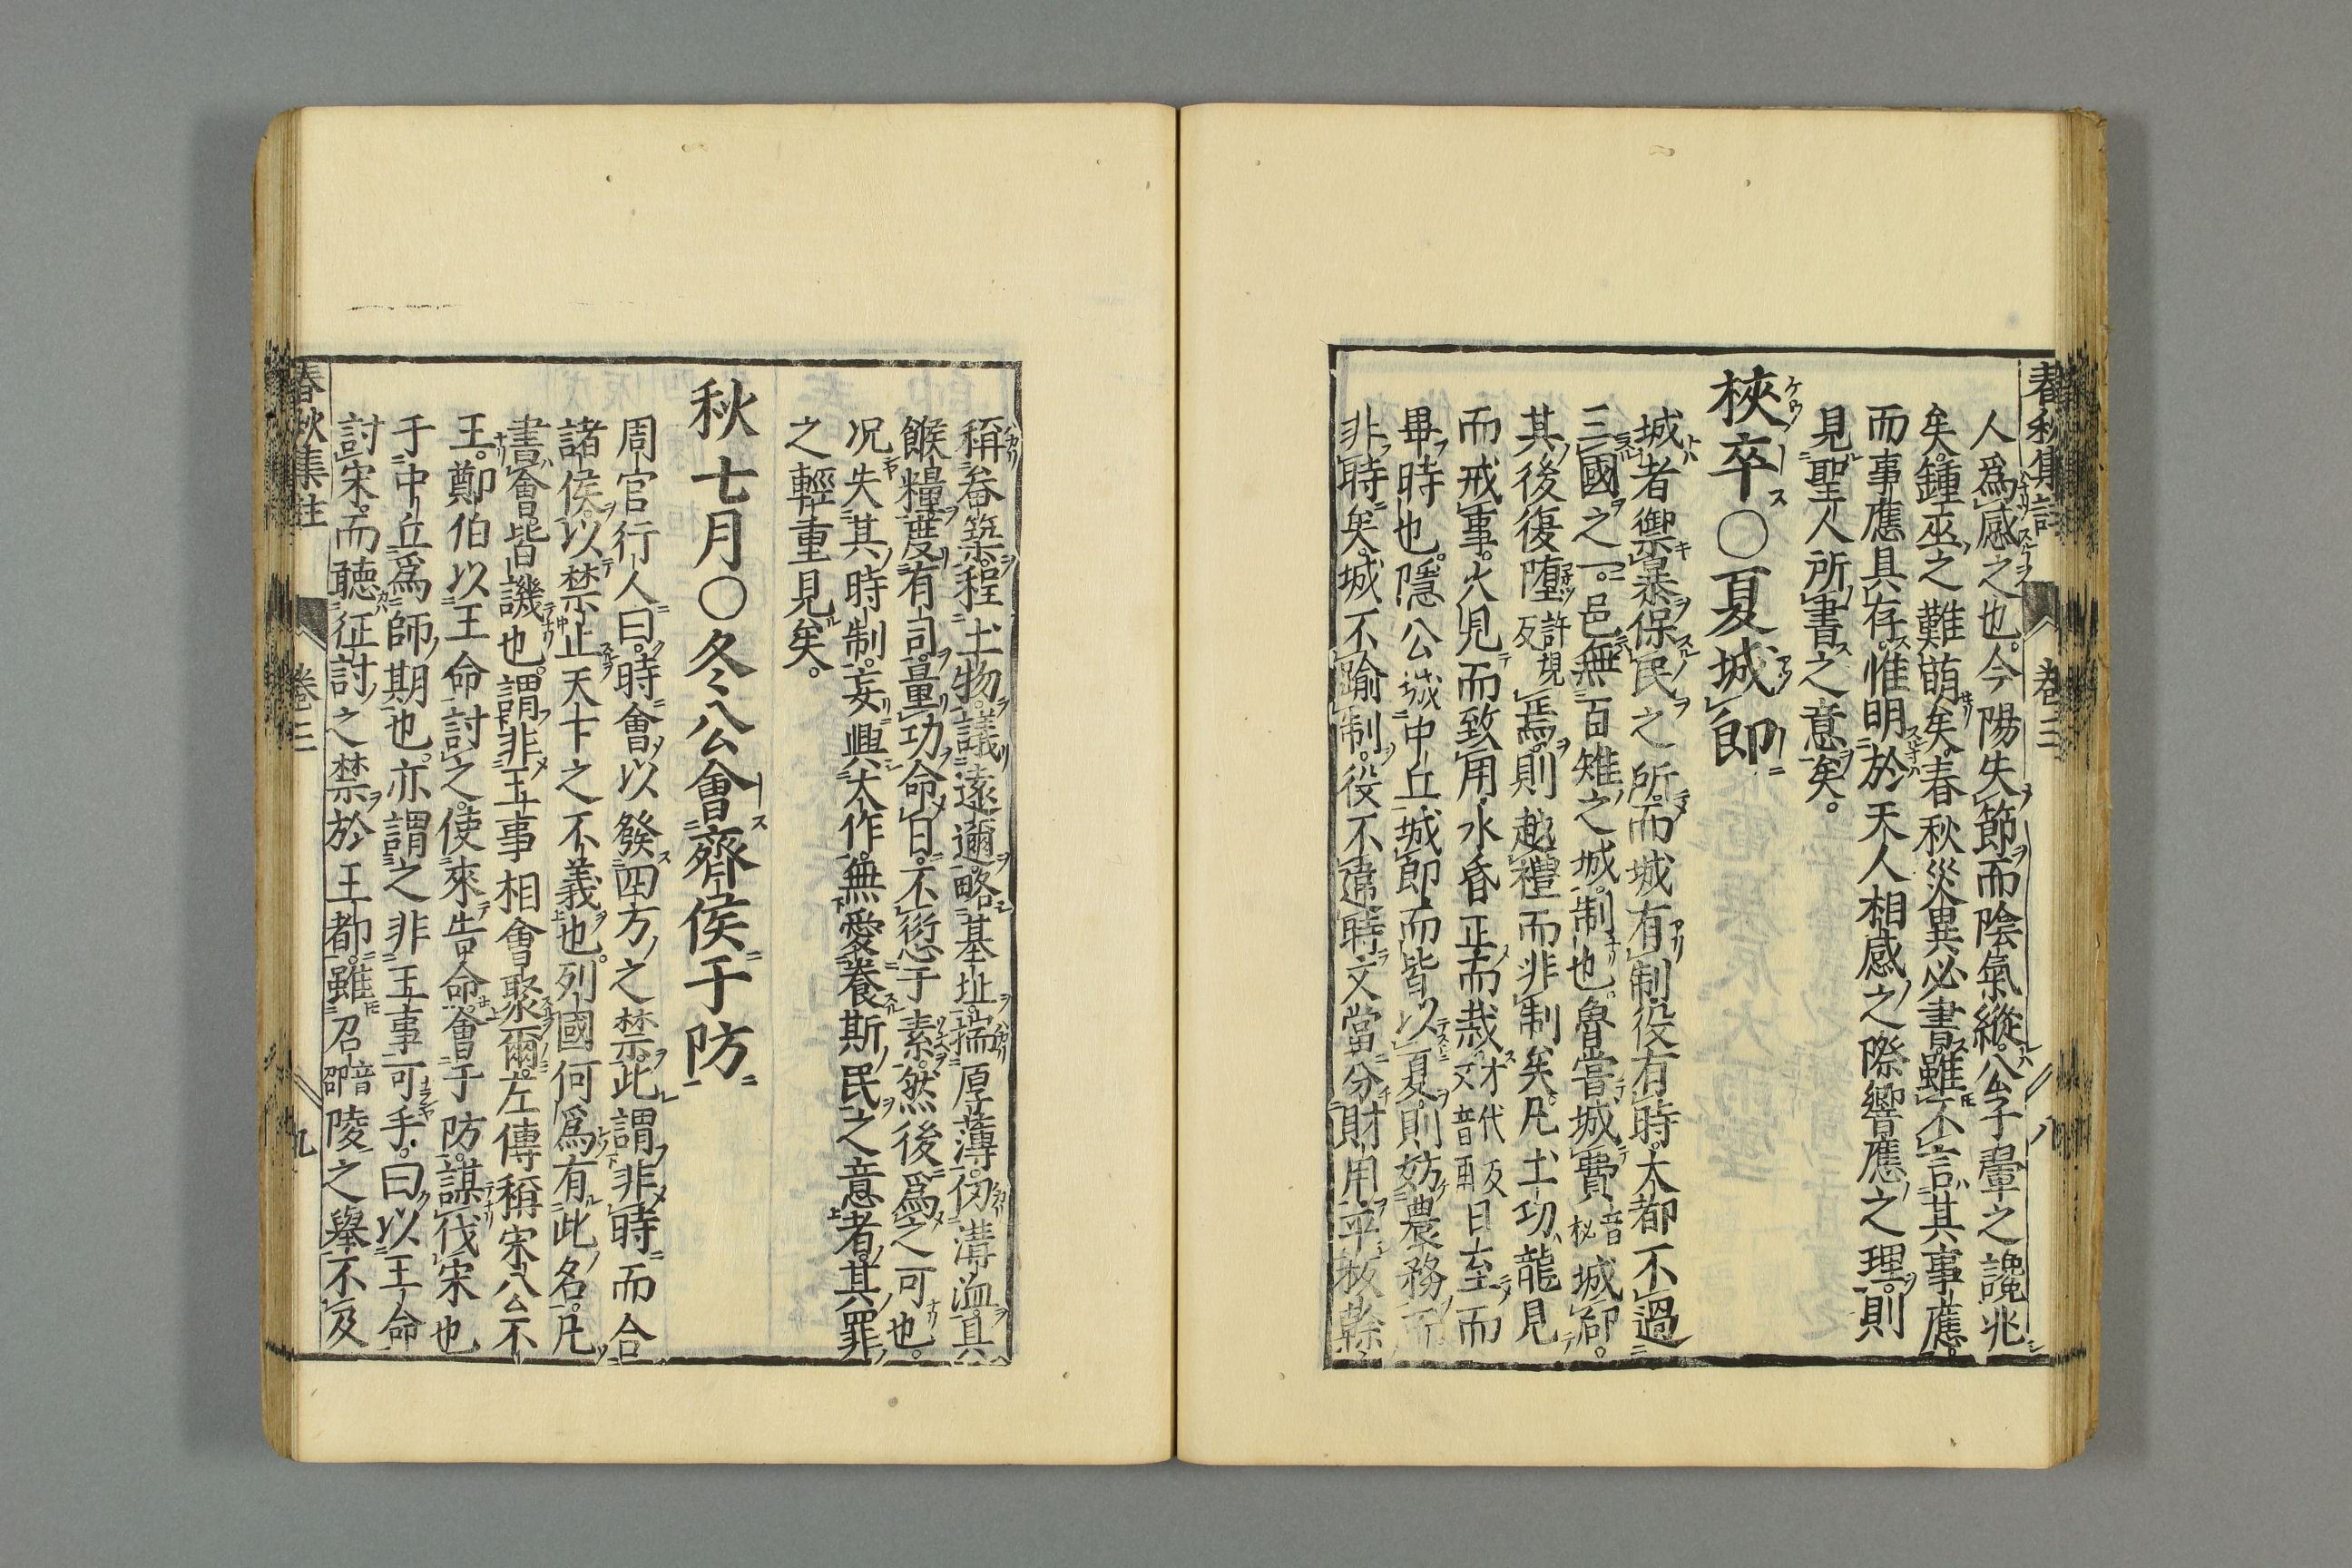 春秋集註 卷三 八
人爲感之也今陽失節而陰氣縱公子翬之讒兆
矣鍾巫之難萌矣春秋災異必書雖不言其事應
而事應具存惟明於天人相感之際響應之理則
見聖人所書之意矣。
挾卒〇夏城郎
城者禦暴保民之所而城有制役有時大都不過
三國之一邑無百雉之城制也魯嘗城費音祕城郈。
其後復墮許規反焉則越禮而非制矣凡土功龍見
而戒事火見而致用水昏正而栽才代反又音再日至而
畢時也隱公城中丘城郎而皆以夏則妨農務而
非時矣城不踰制役不違時又當分財用平板榦
稱畚築程土物議遠邇略基址揣厚薄仞溝洫具
餱糧度有司量功命日不愆于素然後爲之可也。
况失其時制妄興大作無愛養斯民之意者其罪
之輕重見矣。
秋七月〇冬公會齊侯于防
周官行人曰時會以發四方之禁此謂非時而合
諸侯以禁止天下之不義也列國何爲有此名凡
書會皆譏也謂非王事相會聚爾左傳稱宋公不
王鄭伯以王命討之使來告命會于防謀伐宋也
于中丘爲師期也亦謂之非王事可乎曰以王命
討宋而聽征討之禁於王都雖召音邵陵之舉不及
春秋集註 卷三 九